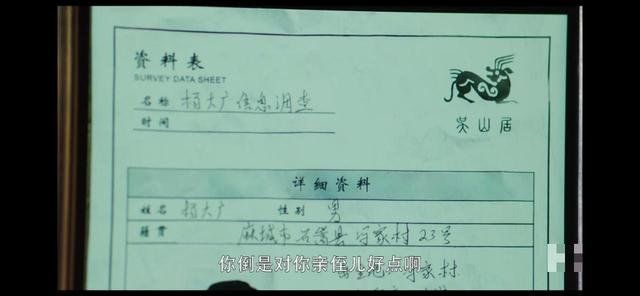 资料表
SURVEY DATA SHEET
名称 杨大广信息调查
时间
吴山居
详细资料
姓名 杨大广 性别 男
籍贯 麻城市石嵩县守家村23号
守家村
你倒是对你亲侄儿好点啊
H